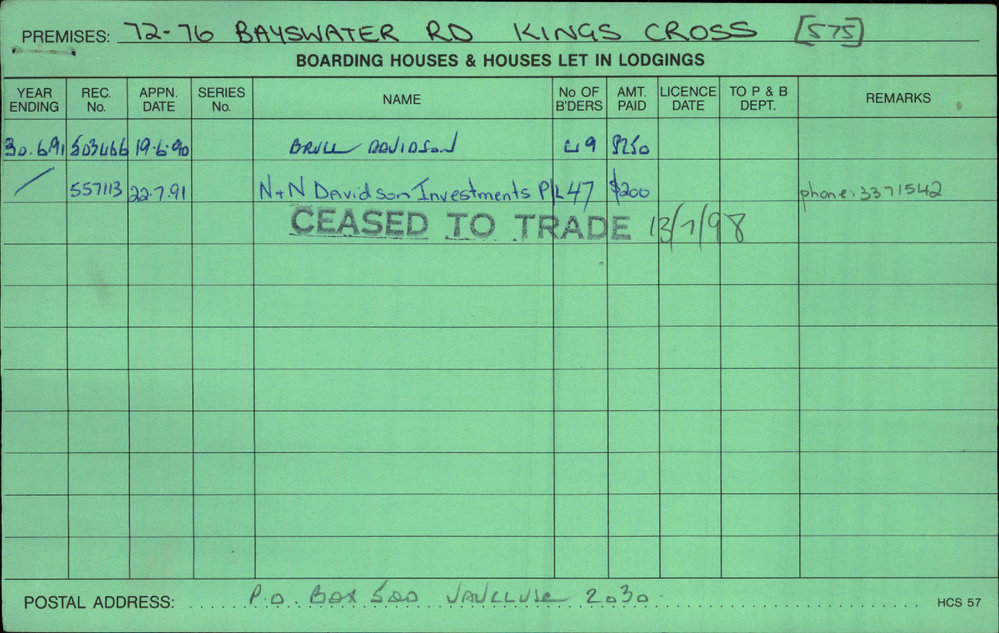 PREMISES: 72-76 BAYSWATER RD KINGS CROSS [575]
BOARDING HOUSES & HOUSES LET IN LODGINGS
YEAR ENDING REC. No. APPN. DATE SERIES No. NAME No OF B'DERS AMT. PAID LICENCE DATE TO P & B DEPT. REMARKS
30.6.91 503466 19.6.90 DAVIDSON 49 $250
/ 557113 22.7.91 N+N Davidson Investments P/L 47 $200 phone: 3371542
CEASED TO TRADE 13/7/98
POSTAL ADDRESS: P.O. Box 500 VAUCLUSE 2030 HCS 57